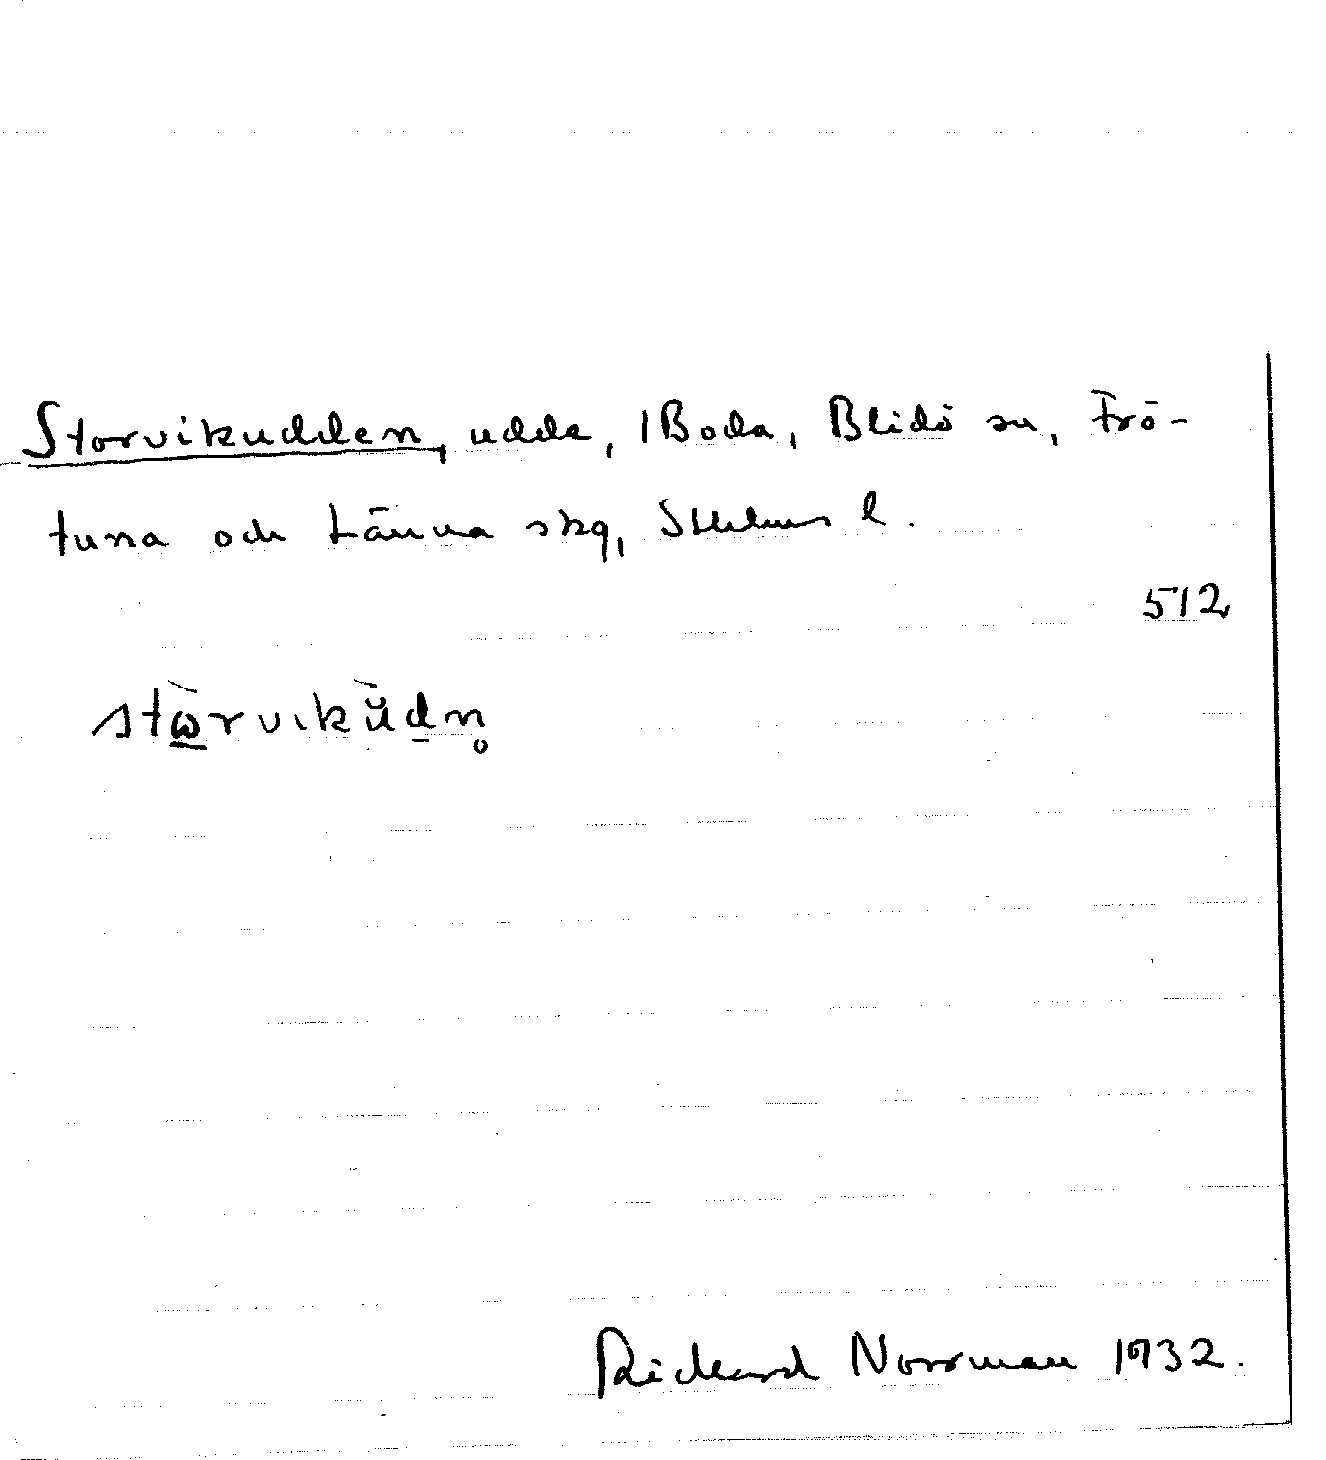 Storvikudden, udde, 1 Boda, Blidö sn, Frö-
tuna och Länna skg, Sthlms l.
512
stὼ̲rvikŭd̲n̥
Rickard Norrman 1932.